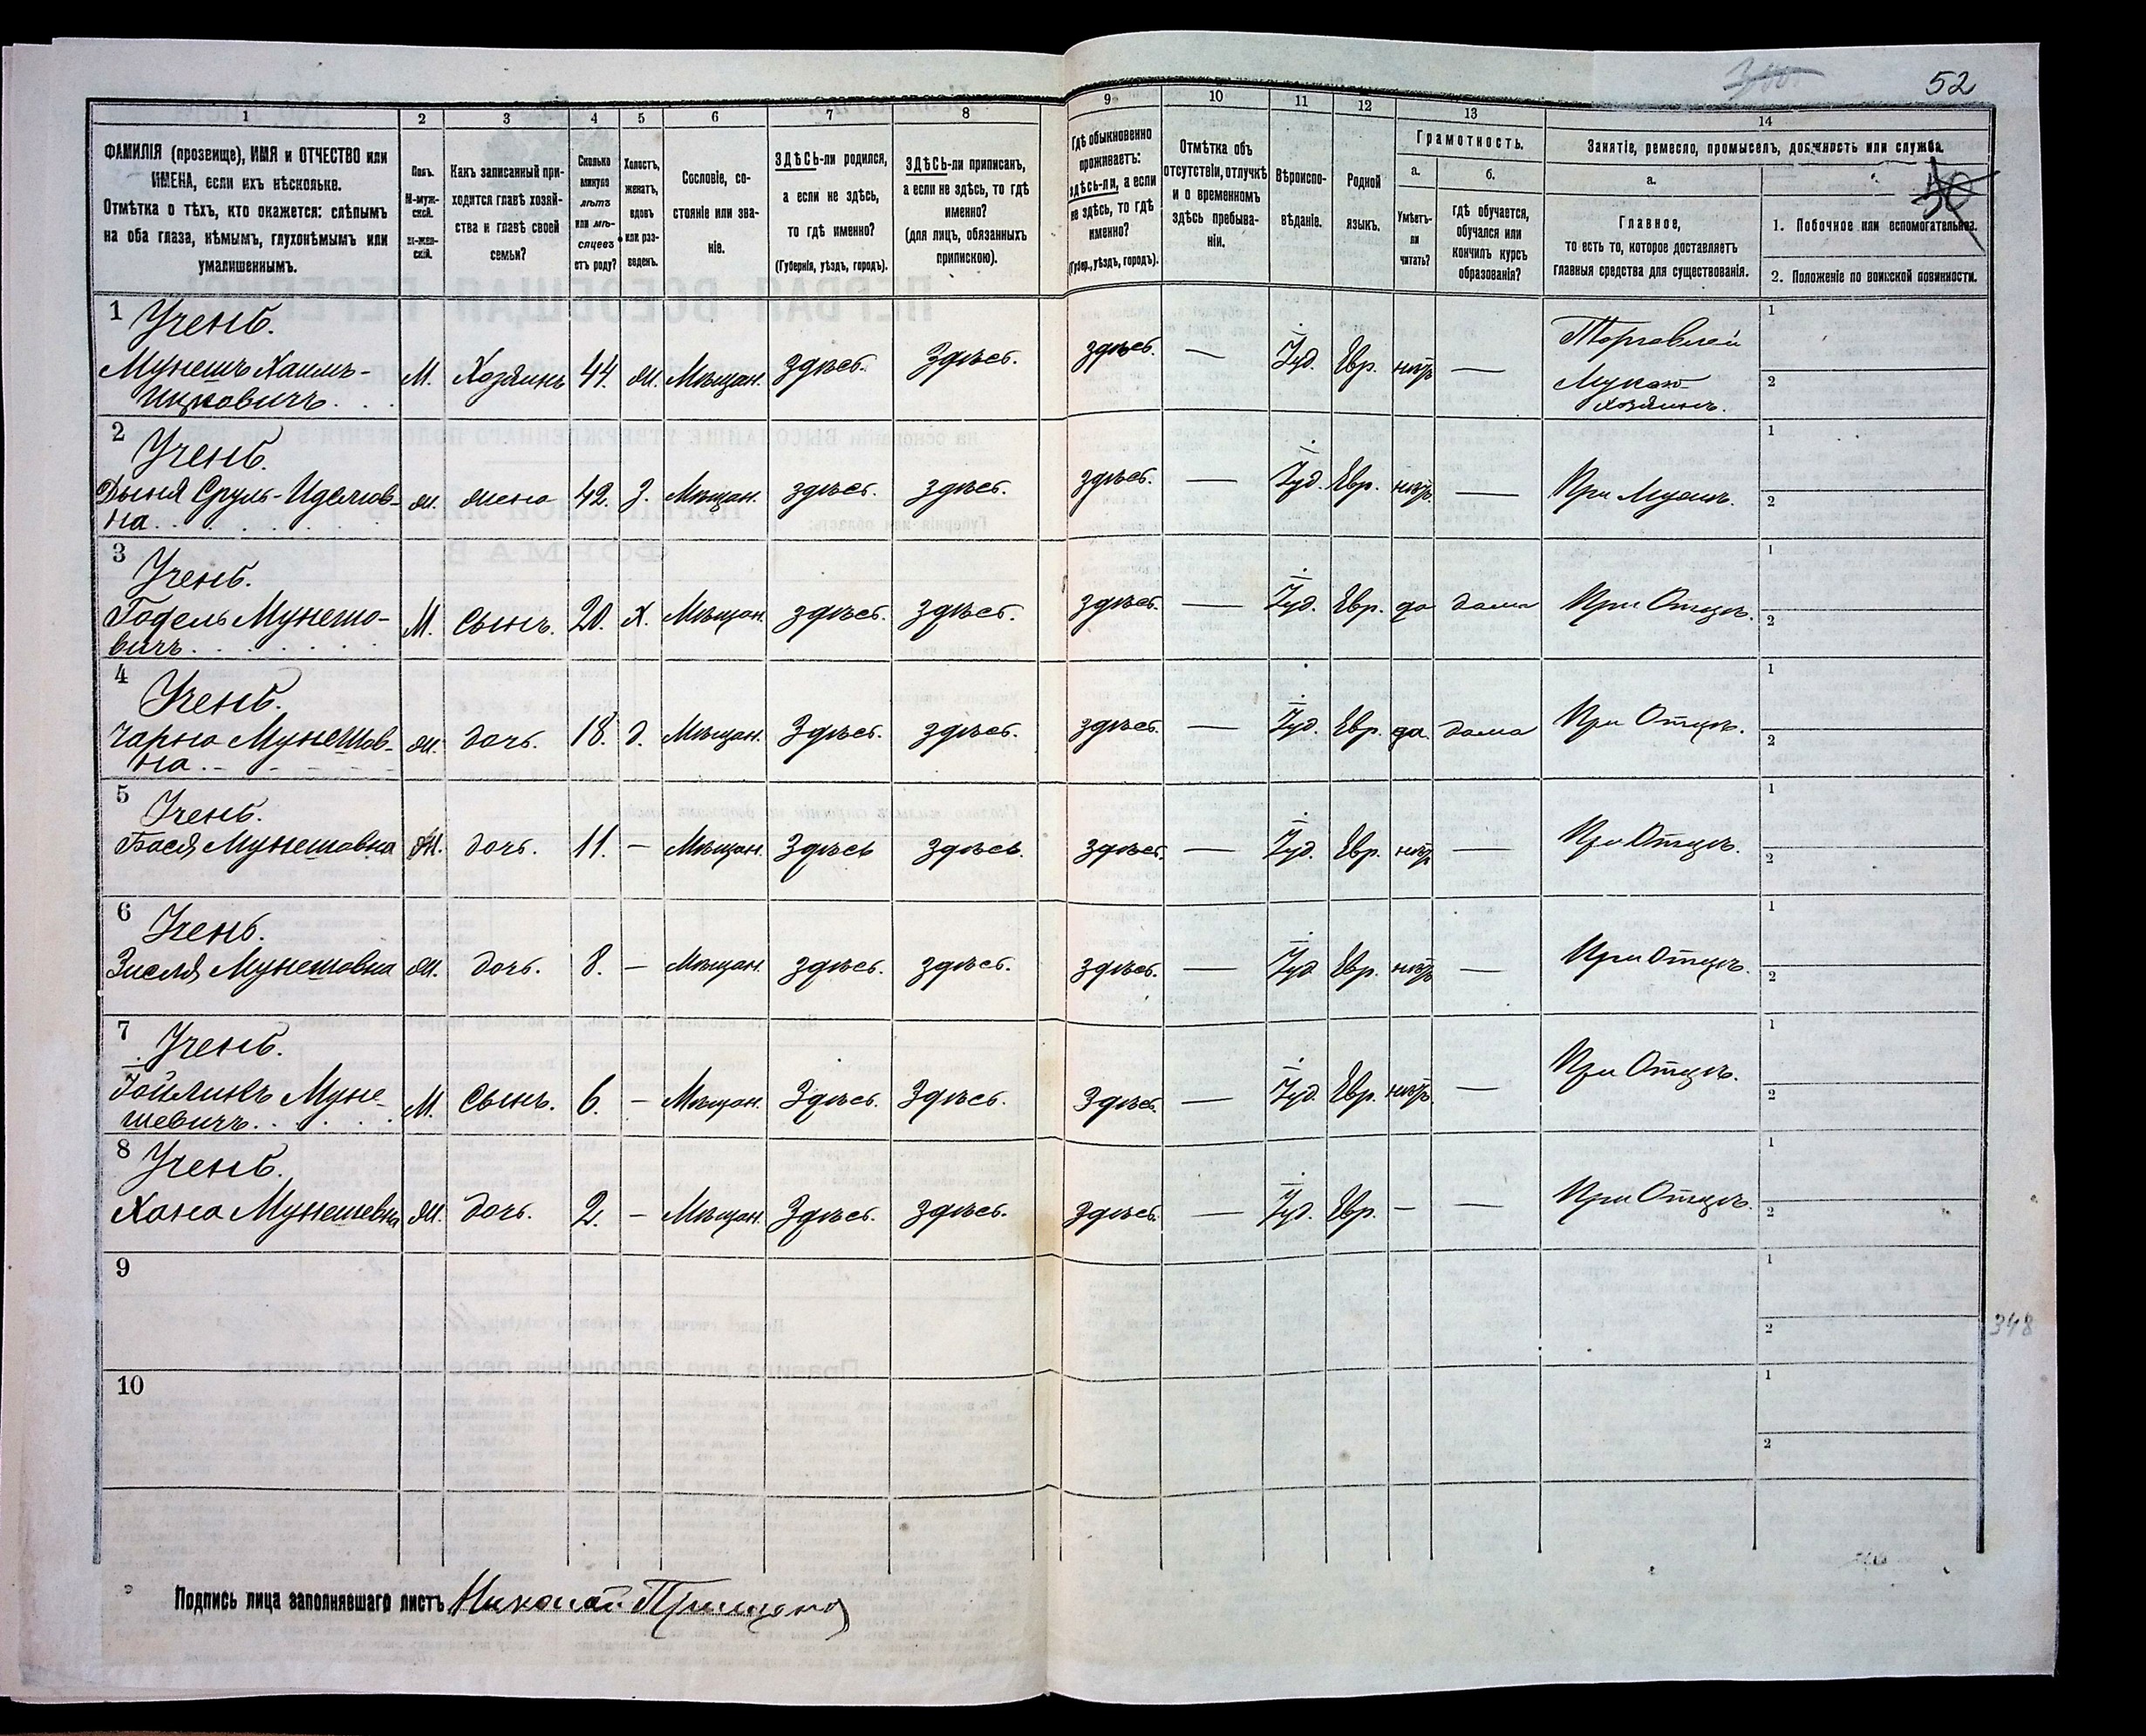 52
1 2 3 4 5 6 7 8 9 10 11 12 13 14
ФАМИЛІЯ (прозвище), ИМЯ и ОТЧЕСТВО или
ИМЕНА, если ихъ нѣсколько.
Отмѣтка о тѣхъ, кто окажется: слѣпымъ
на оба глаза, нѣмымъ, глухонѣмымъ или
умалишеннымъ.
Полъ.
М-муж-
ской.
Ж-жен-
скій.
Какъ записанный при-
ходится главѣ хозяй-
ства и главѣ своей
семьи?
Сколько
минуло
лѣтъ
или мѣ-
сяцевъ
отъ роду?
Холостъ,
женатъ,
вдовъ
или раз-
веденъ.
Сословіе, со-
стояніе или зва-
ніе.
ЗДѢСЬ-ли родился,
а если не здѣсь,
то гдѣ именно?
(Губернія, уѣздъ, городъ).
ЗДѢСЬ-ли приписанъ,
а если не здѣсь, то гдѣ
именно?
(для лицъ, обязанныхъ
припискою).
Гдѣ обыкновенно
проживаетъ:
здѣсь-ли, а если
не здѣсь, то гдѣ
именно?
(Губер., уѣздъ, городъ).
Отмѣтка объ
отсутствіи, отлучкѣ
и о временномъ
здѣсь пребыва-
ніи.
Вѣроиспо-
вѣданіе.
Родной
языкъ.
Грамотность.
а.
Умѣетъ-
ли
читать?
б.
гдѣ обучается,
обучался или
кончилъ курсъ
образованія?
Занятіе, ремесло, промыселъ, должность или служба.
а.
Главное,
то есть то, которое доставляетъ
главныя средства для существованія.
50
1. Побочное или вспомогательное.
2. Положеніе по воинской повинности.
1 Учень.
Мунешъ Хаимъ-
Ицковичъ. М. Хозяинъ 44. ж. Мѣщан. здѣсь. Здѣсь. здѣсь. — Іуд. Евр. нѣтъ — Торговлей
Мукою
хозяинъ.
1
2
2 Учень.
Дыня Сруль-Иделев-
на. ж. жена 42. З. Мѣщан. здѣсь. здѣсь. здѣсь. — Іуд. Евр. нѣтъ. — При Мужѣ.
1
2
3 Учень.
Годель Мунешо-
вичъ. М. Сынъ. 20. Х. Мѣщан. здѣсь. здѣсь. здѣсь. — Іуд. Евр. да дома При Отцѣ.
1
2
4 Учень.
Чарна Мунешов-
на. ж. дочь. 18. д. Мѣщан. Здѣсь. здѣсь. здѣсь. — Іуд. Евр. да. дома При Отцѣ.
1
2
5 Учень.
Бася Мунешовна ж. дочь. 11. — Мѣщан. Здѣсь здѣсь. здѣсь. — Іуд. Евр. нѣтъ — При Отцѣ.
1
2
6 Учень.
Зисля Мунешовна ж. дочь. 8. — Мѣщан. здѣсь. здѣсь. здѣсь. — Іуд Евр. нѣтъ — При Отцѣ.
1
2
7 Учень.
Гойликъ Муне-
шевичъ. М. Сынъ. 6. — Мѣщан. Здѣсь. Здѣсь. Здѣсь. — Іуд. Евр. нѣтъ. — При Отцѣ.
1
2
8 Учень.
Хана Мунешевна ж. дочь. 2. — Мѣщан. Здѣсь. здѣсь. здѣсь. — Іуд. Евр. — — При Отцѣ.
1
2
9
1
2
348
10
1
2
Подпись лица заполнявшаго листъ Николай